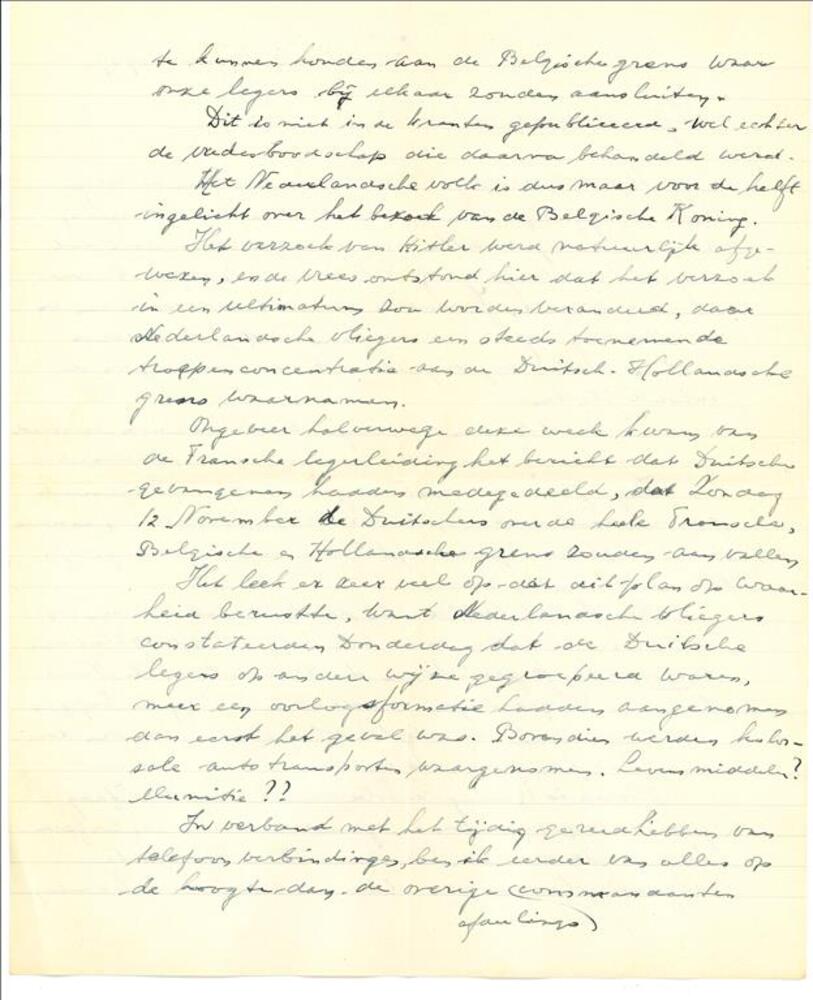 te kunnen houden aan de Belgische grens waar
onze legers bij elkaar zouden aansluiten.
Dit is niet in de kranten gepubliceerd, wel echter
de vredesboodschap die daarna behandeld werd.
Het Nederlandsche volk is dus maar voor de helft
ingelicht over het bezoek van de Belgische Koning.
Het verzoek van Hitler werd natuurlijk afge-
wezen, en de vrees ontstond hier dat het verzoek
in een ultimatum zou worden veranderd, daar
Nederlandsche vliegers een steeds toenemende
troepenconcentratie aan de Duitsch-Hollandsche
grens waarnamen.
Ongeveer halverwege deze week kwam van
de Fransche legerleiding het bericht dat Duitsche
gevangenen hadden medegedeeld, dat Zondag
12 November de Duitschers over de heele Fransche,
Belgische en Hollandsche grens zouden aanvallen
Het leek er zeer veel op dat dit plan op waar-
heid berustte, want Nederlandsche vliegers
constateerden Donderdag dat de Duitsche
legers op andere wijze gegroepeerd waren,
meer een oorlogsformatie hadden aangenomen
dan eerst het geval was. Bovendien werden kolos-
sale autotransporten waargenomen. Levensmiddelen?
Munitie??
In verband met het tijdig gereed hebben van
telefoonverbindingen, ben ik eerder van alles op
de hoogte dan de overige (commandanten
afdeelings)